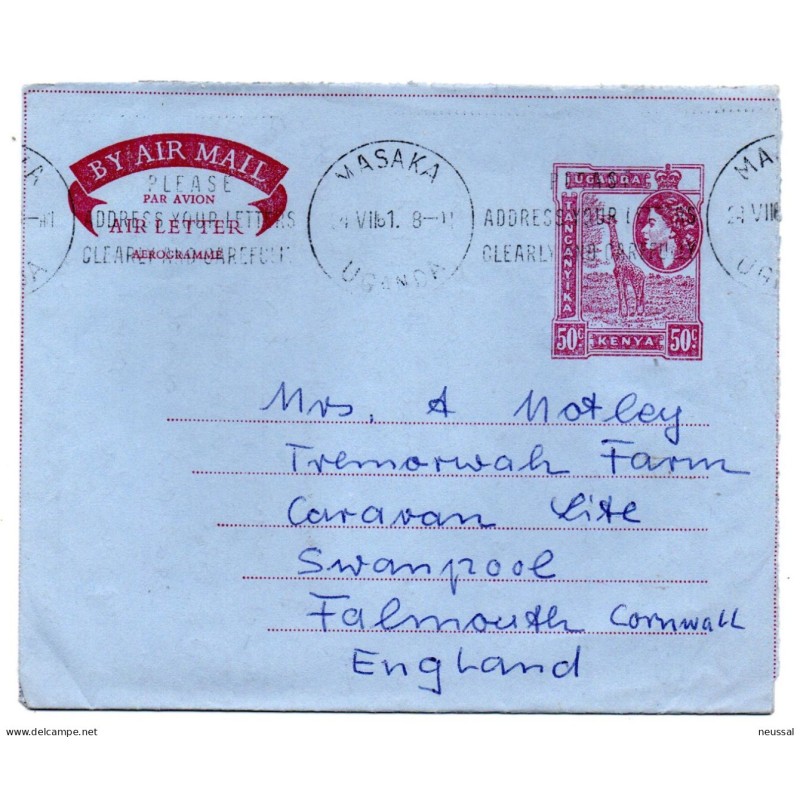 BY AIR MAIL
PAR AVION
AIR LETTER
AÉROGRAMME
PLEASE
ADDRESS YOUR LETTERS
CLEARLY AND CAREFULLY
MASAKA
24 VII 61. 8-
UGANDA
ADDRESS YOUR LETTERS
CLEARLY AND
MA
24 VII 6
UG
UGANDA
TANGANYIKA
50c. KENYA 50c.
Mrs. A Notley
Tremorwah Farm
Caravan Site
Swanpool
Falmouth Cornwall
England
www.delcampe.net
neussal